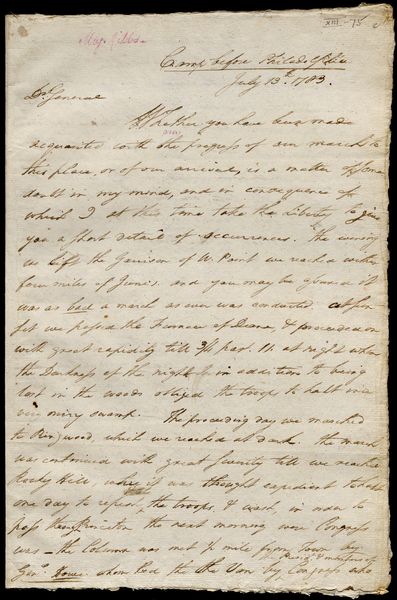 XIII - 75
Maj. Gibbs.
Camp before Philadelphia
July 13th. 1783.
Dr. General
Whether you have been made
acquainted with the progress of our march to
this place, or of our arrival, is a matter of some
doubt in my mind, and in consequence of
which I at this time take the liberty to give
you a short detail of occurrences. The evening
we left the Garrison of W. Point we reached within
few miles of June's. and you may be assured it
was as bad a march as ever was conducted
we passed the Furnace of Deane, & proceeded on
with great rapidity till past 11. at night when
the Darkness of the night in addition to being
lost in the woods obliged the troops to halt in a
very miry swamp. The preceeding day we marched
to Ringwood, which we reached at dark. the march
was continued with great severity till we reached
Rocky Hill, where it was thought expedient to halt
one day to refresh the troops, & wash, in order to
pass thro Princeton the next morning where Congress
was - the Column was met ½ mile from Town by
Genl. Howe whom led the Van by Congress who